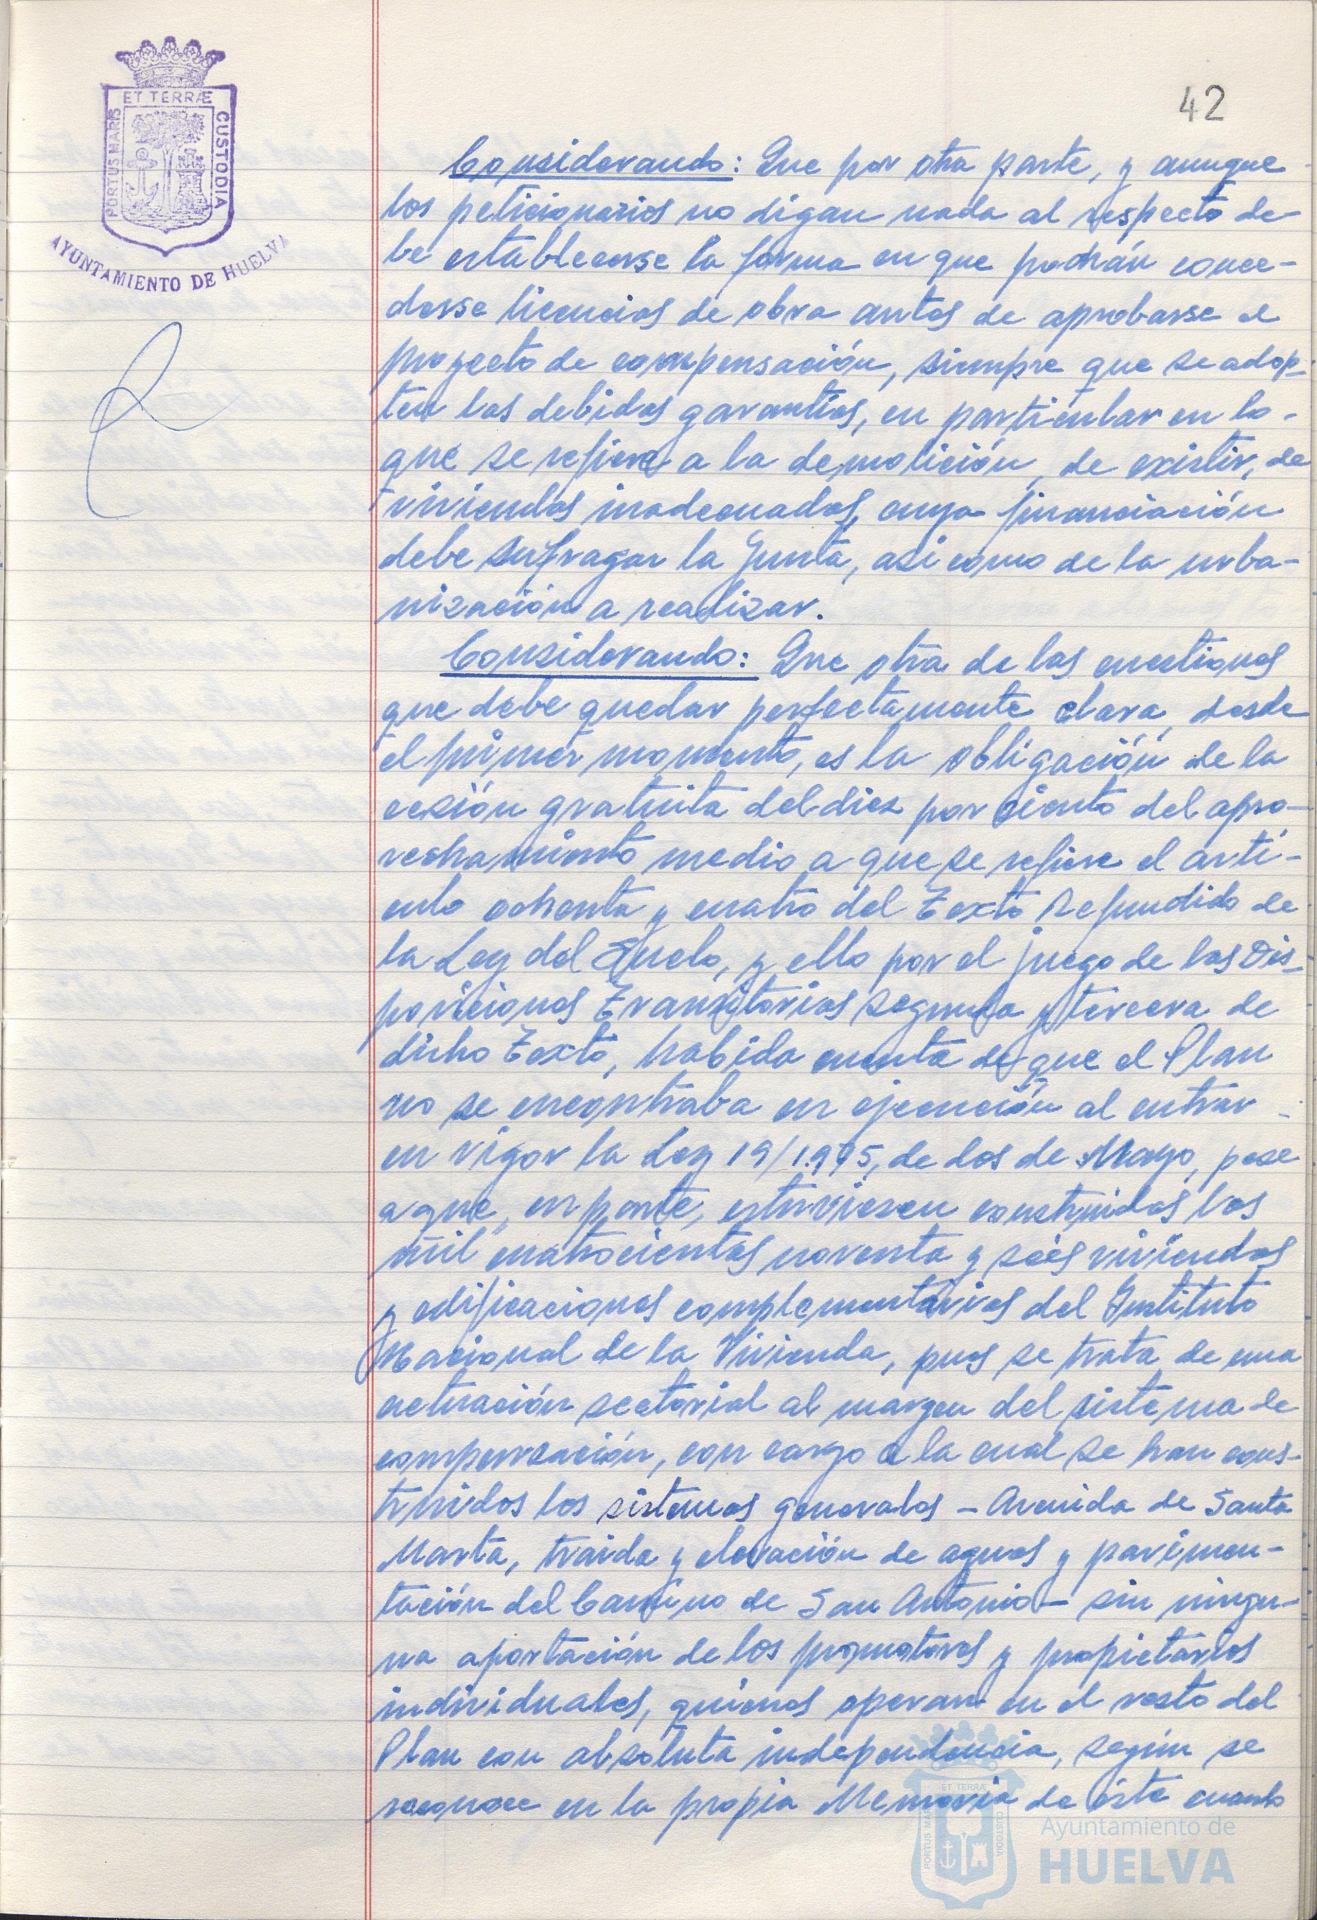 42
ET TERRÆ
PORTUS MARIS
CUSTODIA
AYUNTAMIENTO DE HUELVA
Considerando: Que por otra parte, y aunque
los peticionarios no digan nada al respecto de-
be establecerse la forma en que podrán conce-
derse licencias de obra antes de aprobarse el
proyecto de compensación, siempre que se adop-
ten las debidas garantías, en particular en lo-
que se refiere a la demolición, de existir, de
viviendas inadecuadas, cuya financiación
debe sufragar la Junta, asi como de la urba-
nización a realizar.
Considerando: Que otra de las cuestiones
que debe quedar perfectamente clara, desde
el primer momento, es la obligación de la
cesión gratuita del diez por ciento del apro-
vechamiento medio a que se refiere el artí-
culo ochenta y cuatro del Texto Refundido de
la Ley del Suelo, y ello por el juego de las Dis-
posiciones Transitorias segunda y tercera de
dicho Texto, habida cuenta de que el Plan
no se encontraba en ejecución al entrar -
en vigor la Ley 19/1.975, de dos de Mayo, pese
a que, en parte, estuviesen construidas las
mil cuatrocientas noventa y seis viviendas
y edificaciones complementarias del Instituto
Nacional de la Vivienda, pues se trata de una
actuación sectorial al margen del sistema de
compensación, con cargo a la cual se han cons-
truidos los sistemas generales - Avenida de Santa
Marta, traida y elevación de aguas y pavimen-
tación del Camino de San Antonio - sin ningu-
na aportación de los promotores y propietarios
individuales, quienes operan en el resto del
Plan con absoluta independencia, según se
reconoce en la propia Memoria de éste cuando
ET TERRÆ
PORTUS MARIS
CUSTODIA
Ayuntamiento de
HUELVA